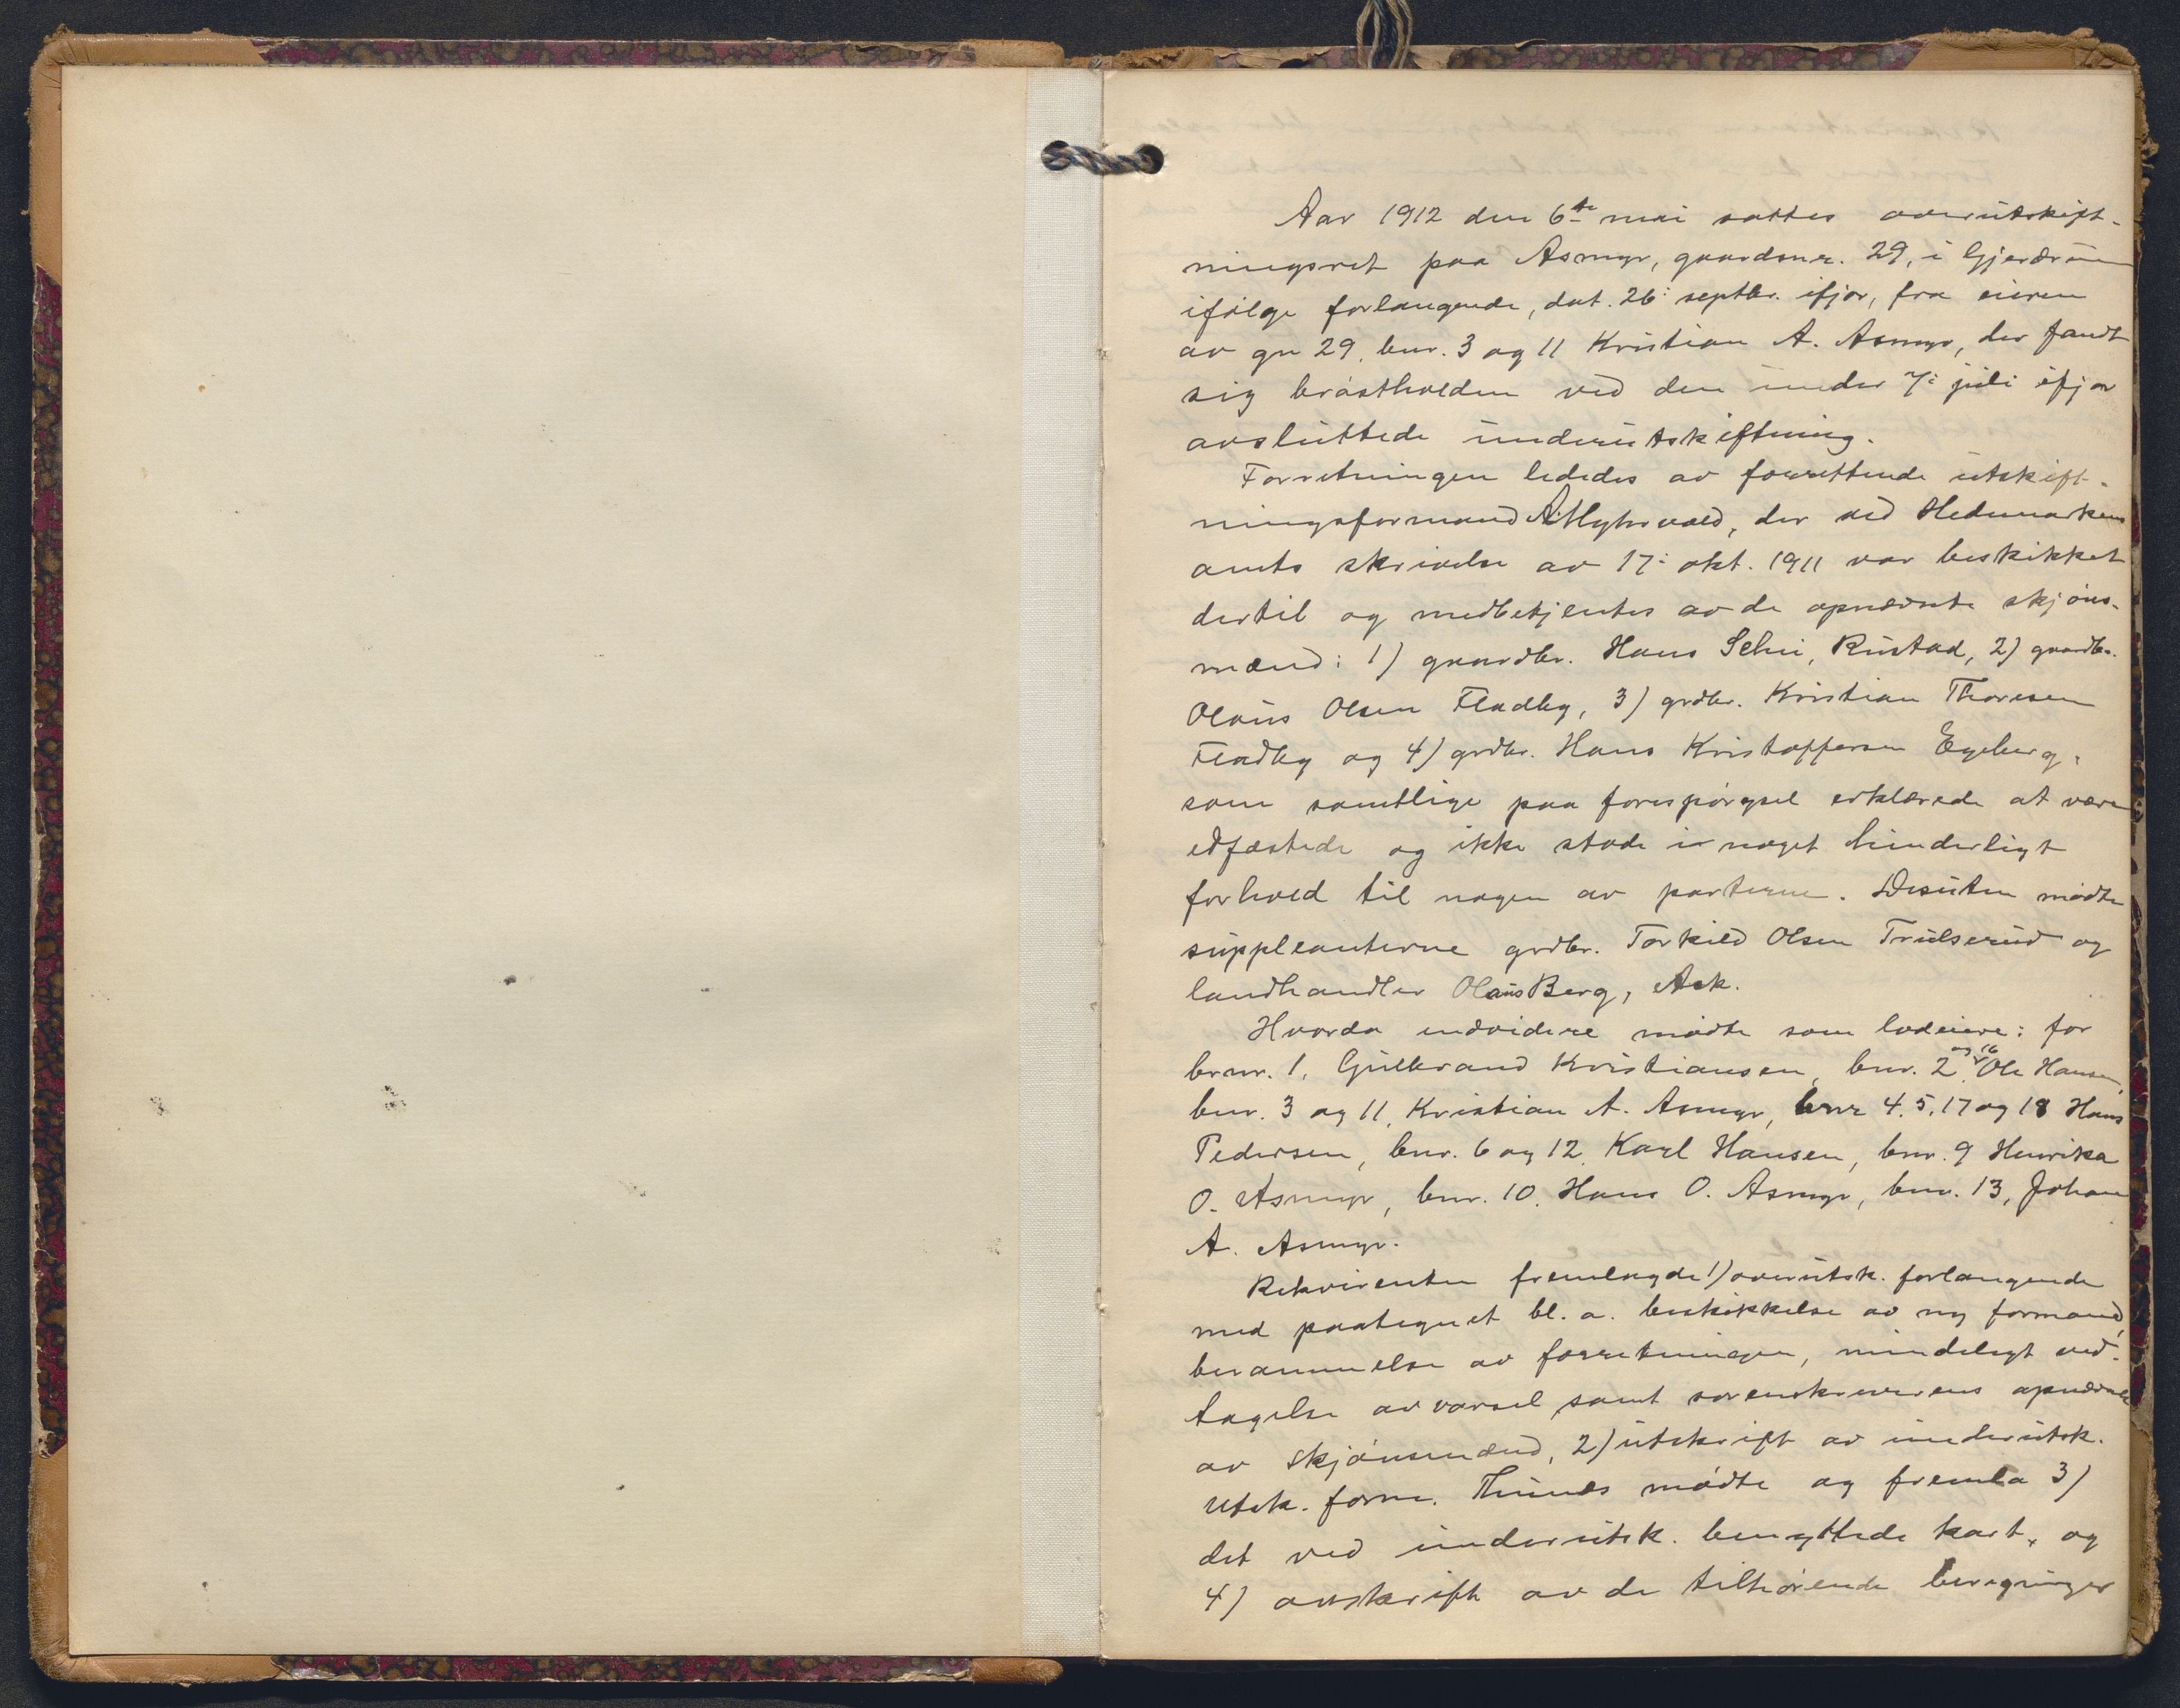 Aar 1912 den 6te mai sattes overutskift-
ningsret paa Asmyr, gaardsnr. 29, i Gjerdrum
ifølge forlangende, dat. 26: septbr. ifjor, fra eieren
av gnr 29, bnr. 3 og 11 Kristian A. Asmyr, der fandt
sig brøstholden ved den under 7: juli ifjor
avsluttede underutskiftning.
Forretningen lededes av forrettende utskift-
ningsformand, der ved Hedemarkens
amts skrivelse av 17: okt. 1911 var beskikket
dertil og medbetjentes av de opnævnte skjøns-
mænd: 1) gaardbr. Hans Rustad, 2) gaardbr.
Olaus Olsen Fladby, 3) grdbr. Kristian Thoresen
Fladby og 4) grdbr. Hans Kristoffersen Egeberg,
som samtlige paa forespørgsel erklærede at være
edfæstede og ikke stode i noget hinderligt
forhold til nogen av parterne. Desuten mødte
suppleanterne grdbr. Torkild Olsen Trulserud og
landhandler Olaus Berg, Ask.
Hvorda endvidere mødte som lodeiere: for
brnr. 1, Gulbrand Kristiansen, bnr. 2 og 16 Ole Hansen,
bnr. 3 og 11, Kristian A. Asmyr, brnr 4, 5, 17 og 18 Hans
Pedersen, bnr. 6 og 12, Karl Hansen, bnr. 9 Henrika
O. Asmyr, bnr. 10, Hans O. Asmyr, bnr. 13, Johan
A. Asmyr.
Rekvirenten fremlagde 1) overutsk. forlangende
med paategnet bl. a. beskikkelse av ny formand,
berammelse av forretningen, mindeligt ved-
tagelse av varsel samt sorenskriverens opnævnelse
av skjønsmænd, 2) utskrift av underutsk.
Utsk. form. Thunæs mødte og fremla 3)
det ved underutsk. benyttede kart, og
4) avskrift av de tilhørende beregninger